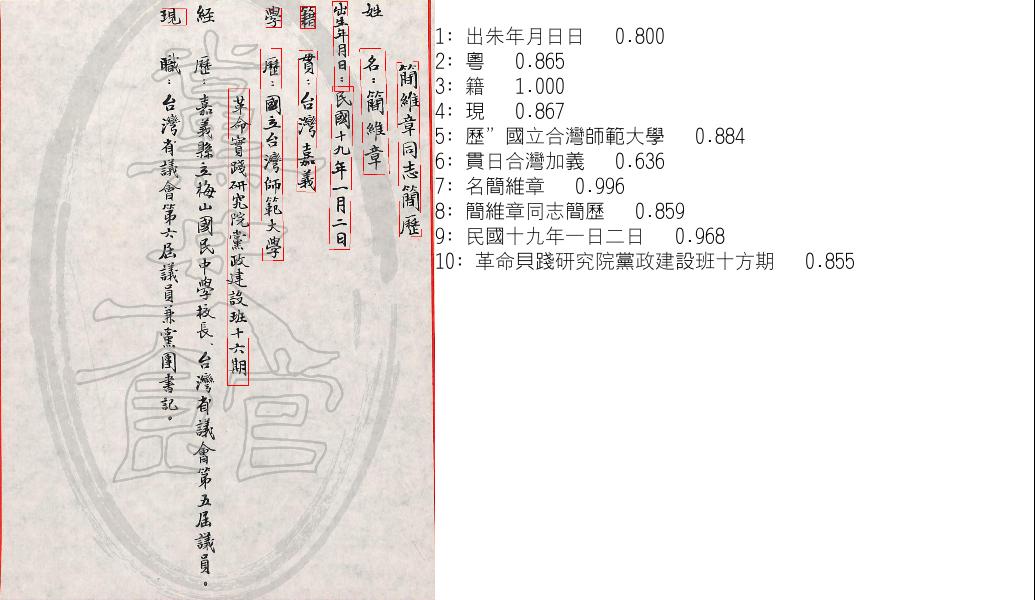 簡維章同志簡歷
姓名：簡維章
出生年月日：民國十九年一月二日
籍貫：台灣嘉義
學歷：國立台灣師範大學
革命實踐研究院黨政建設班十六期
経歷：嘉義縣立梅山國民中學校長、台灣省議會第五屆議員。
現職：台灣省議會第六屆議員兼黨團書記。
1: 出朱年月日日 0.800
2: 粵 0.865
3: 籍 1.000
4: 現 0.867
5: 歷”國立合灣師範大學 0.884
6: 貫日合灣加義 0.636
7: 名簡維章 0.996
8: 簡維章同志簡歷 0.859
9: 民國十九年一日二日 0.968
10: 革命貝踐研究院黨政建設班十方期 0.855